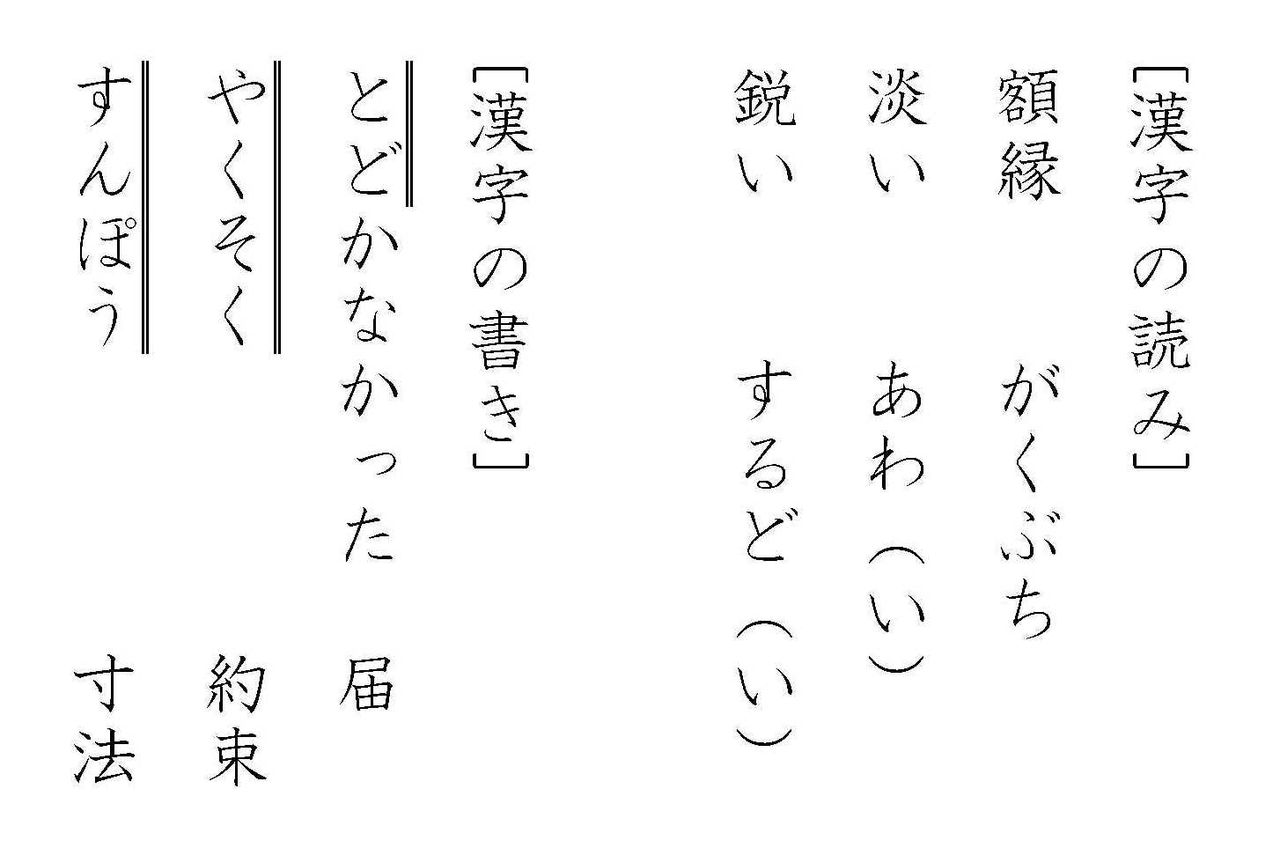 ［漢字の読み］
額縁　がくぶち
淡い　あわ（い）
鋭い　するど（い）
［漢字の書き］
とどかなかった　届
やくそく　約束
すんぽう　寸法